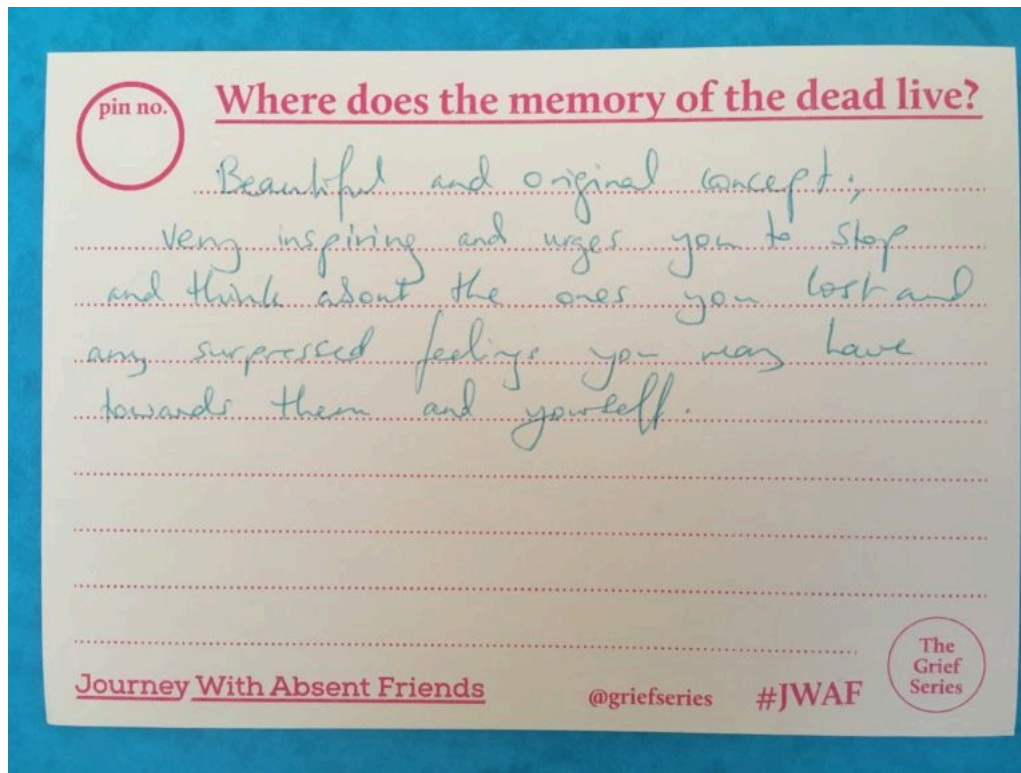 pin no.
Where does the memory of the dead live?
Beautiful and original concept;
very inspiring and urges you to stop
and think about the ones you lost and
any surpressed feelings you may have
towards them and yourself.
Journey With Absent Friends
@griefseries
#JWAF
The
Grief
Series